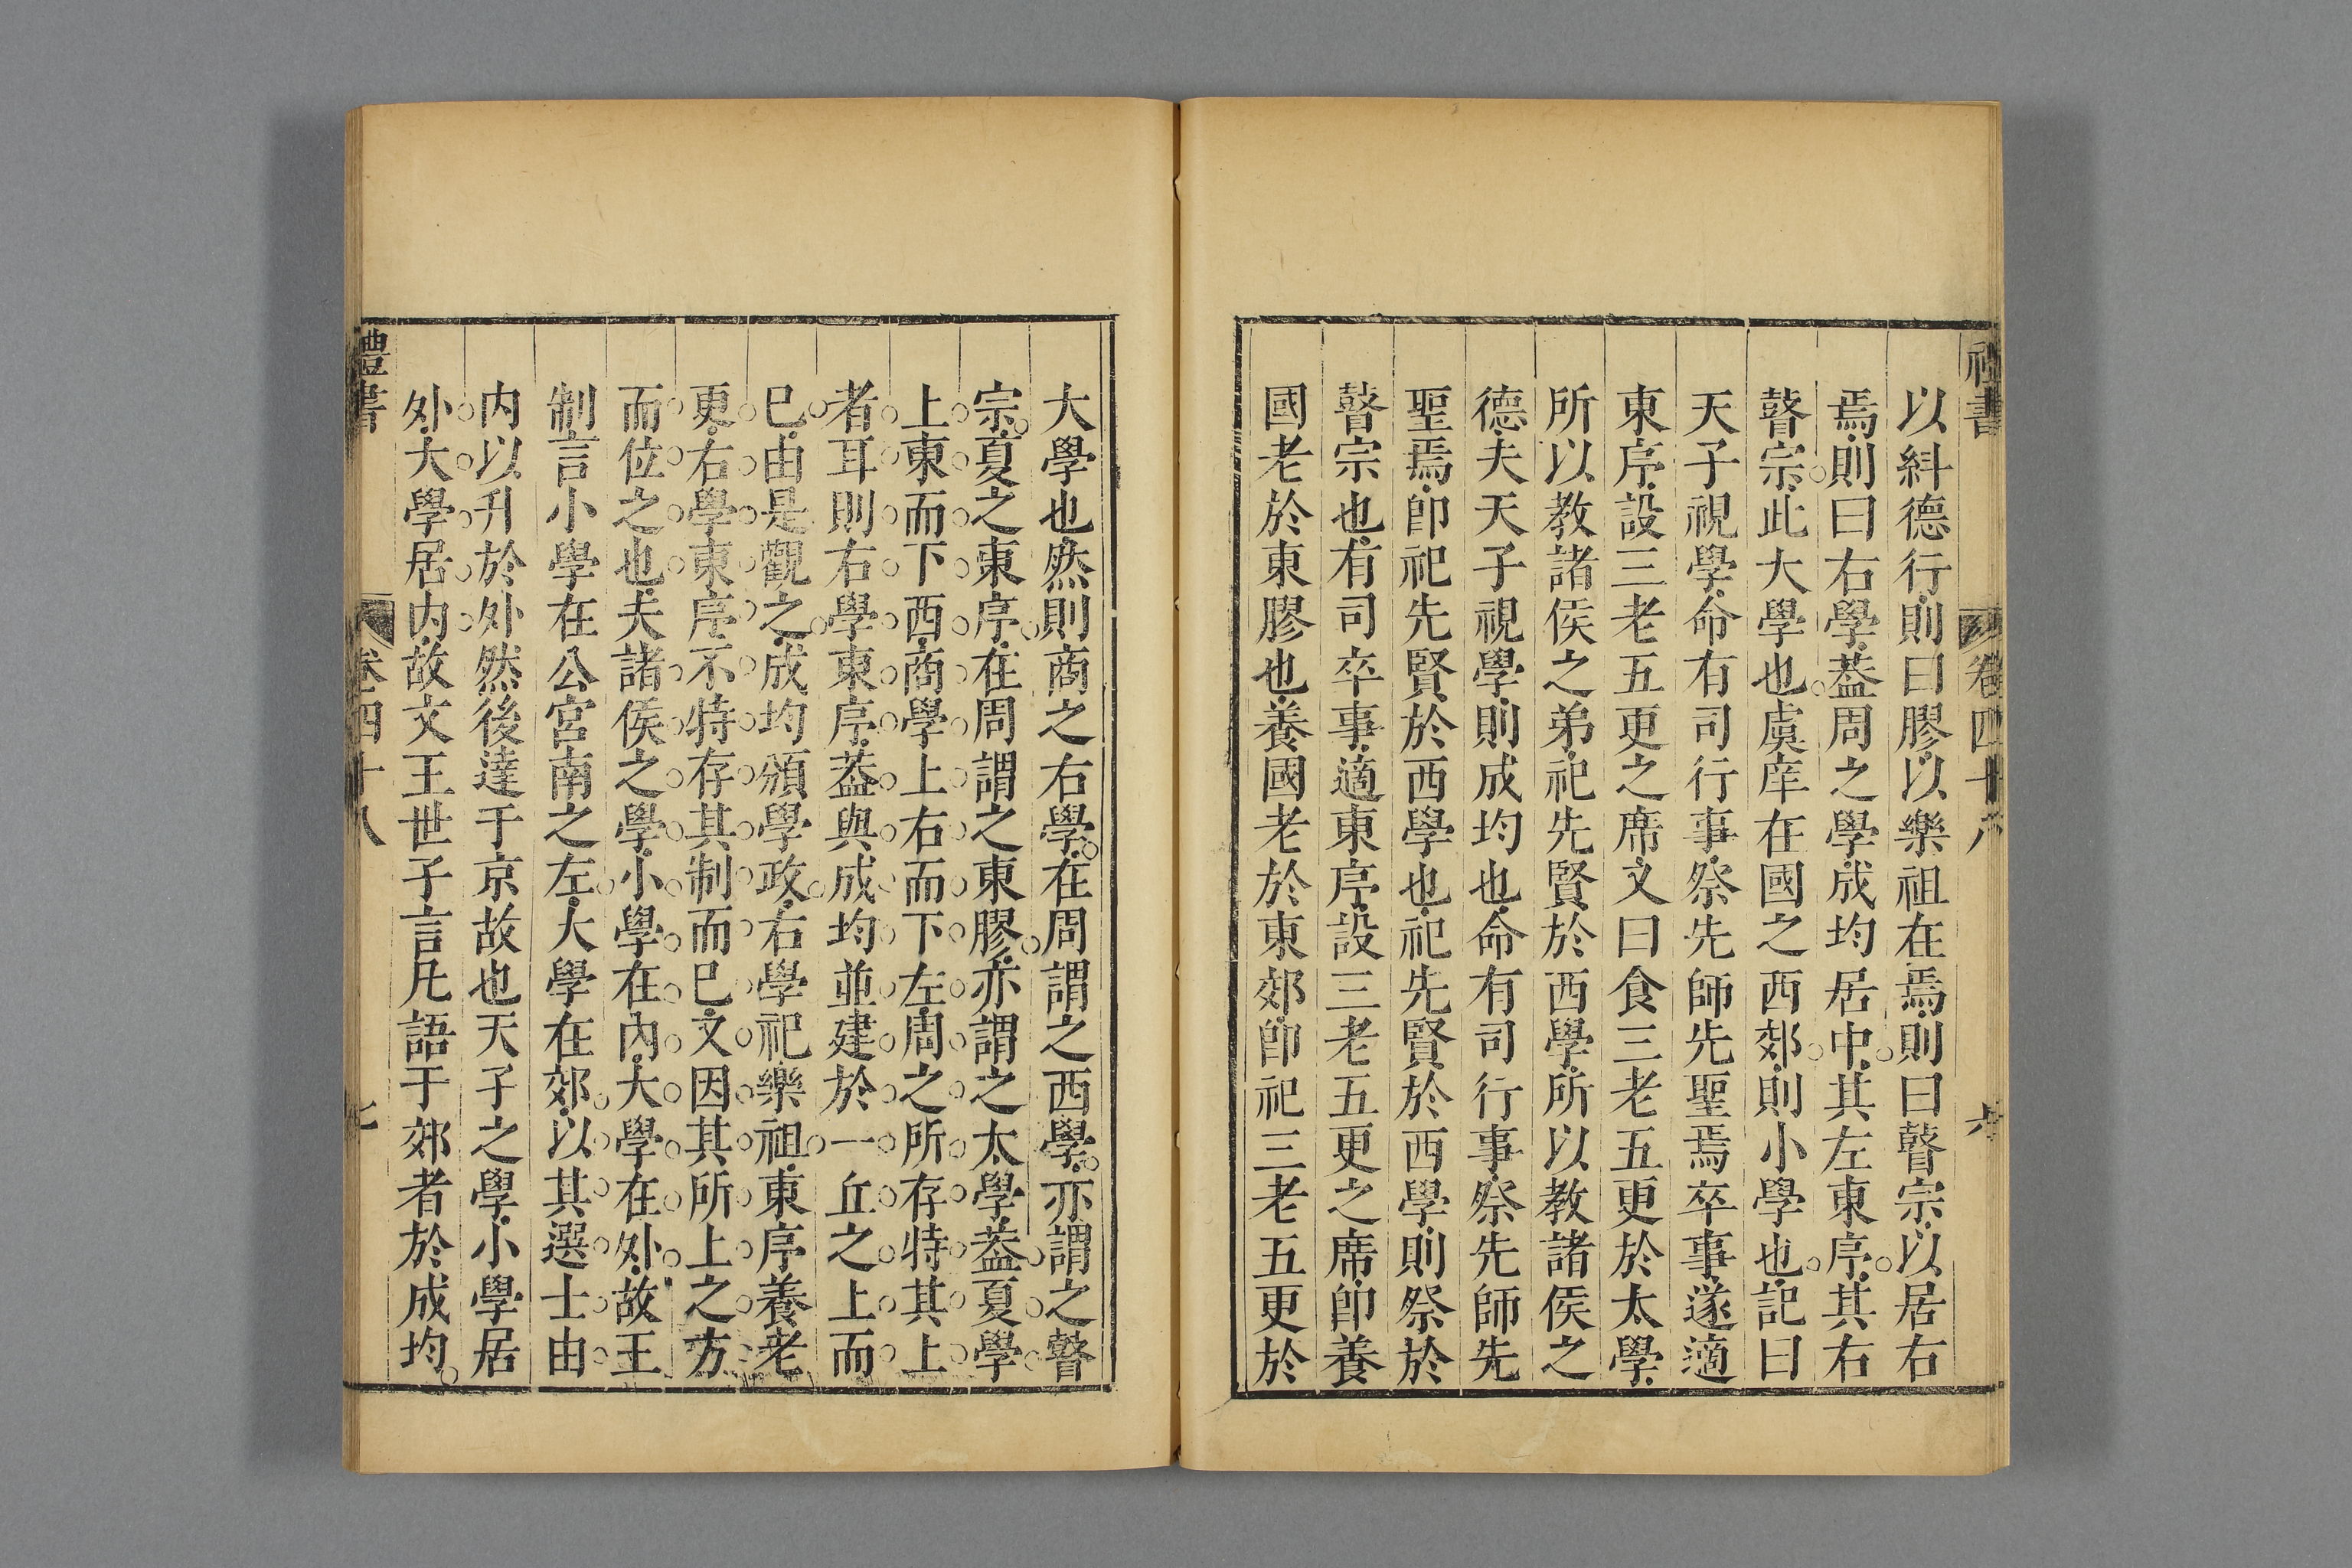 禮書 卷四十八 六
以糾德行則曰膠以樂祖在焉則曰瞽宗以居右
焉則曰右學葢周之學成均居中其左東序其右
瞽宗此大學也虞庠在國之西郊則小學也記曰
天子視學命有司行事祭先師先聖焉卒事遂適
東序設三老五更之席文曰食三老五更於太學
所以教諸侯之弟祀先賢於西學所以教諸侯之
德夫天子視學則成均也命有司行事祭先師先
聖焉卽祀先賢於西學也祀先賢於西學則祭於
瞽宗也有司卒事適東序設三老五更之席卽養
國老於東膠也養國老於東郊卽祀三老五更於
大學也然則商之右學在周謂之西學亦謂之瞽
宗夏之東序在周謂之東膠亦謂之太學葢夏學
上東而下西商學上右而下左周之所存特其上
者耳則右學東序葢與成均並建於一丘之上而
已由是觀之成均頒學政右學祀樂祖東序養老
更右學東序不特存其制而已文因其所上之方
而位之也夫諸侯之學小學在內大學在外故王
制言小學在公宮南之左大學在郊以其選士由
內以升於外然後達于京故也天子之學小學居
外大學居內故文王世子言凡語于郊者於成均
禮書 卷四十八 七